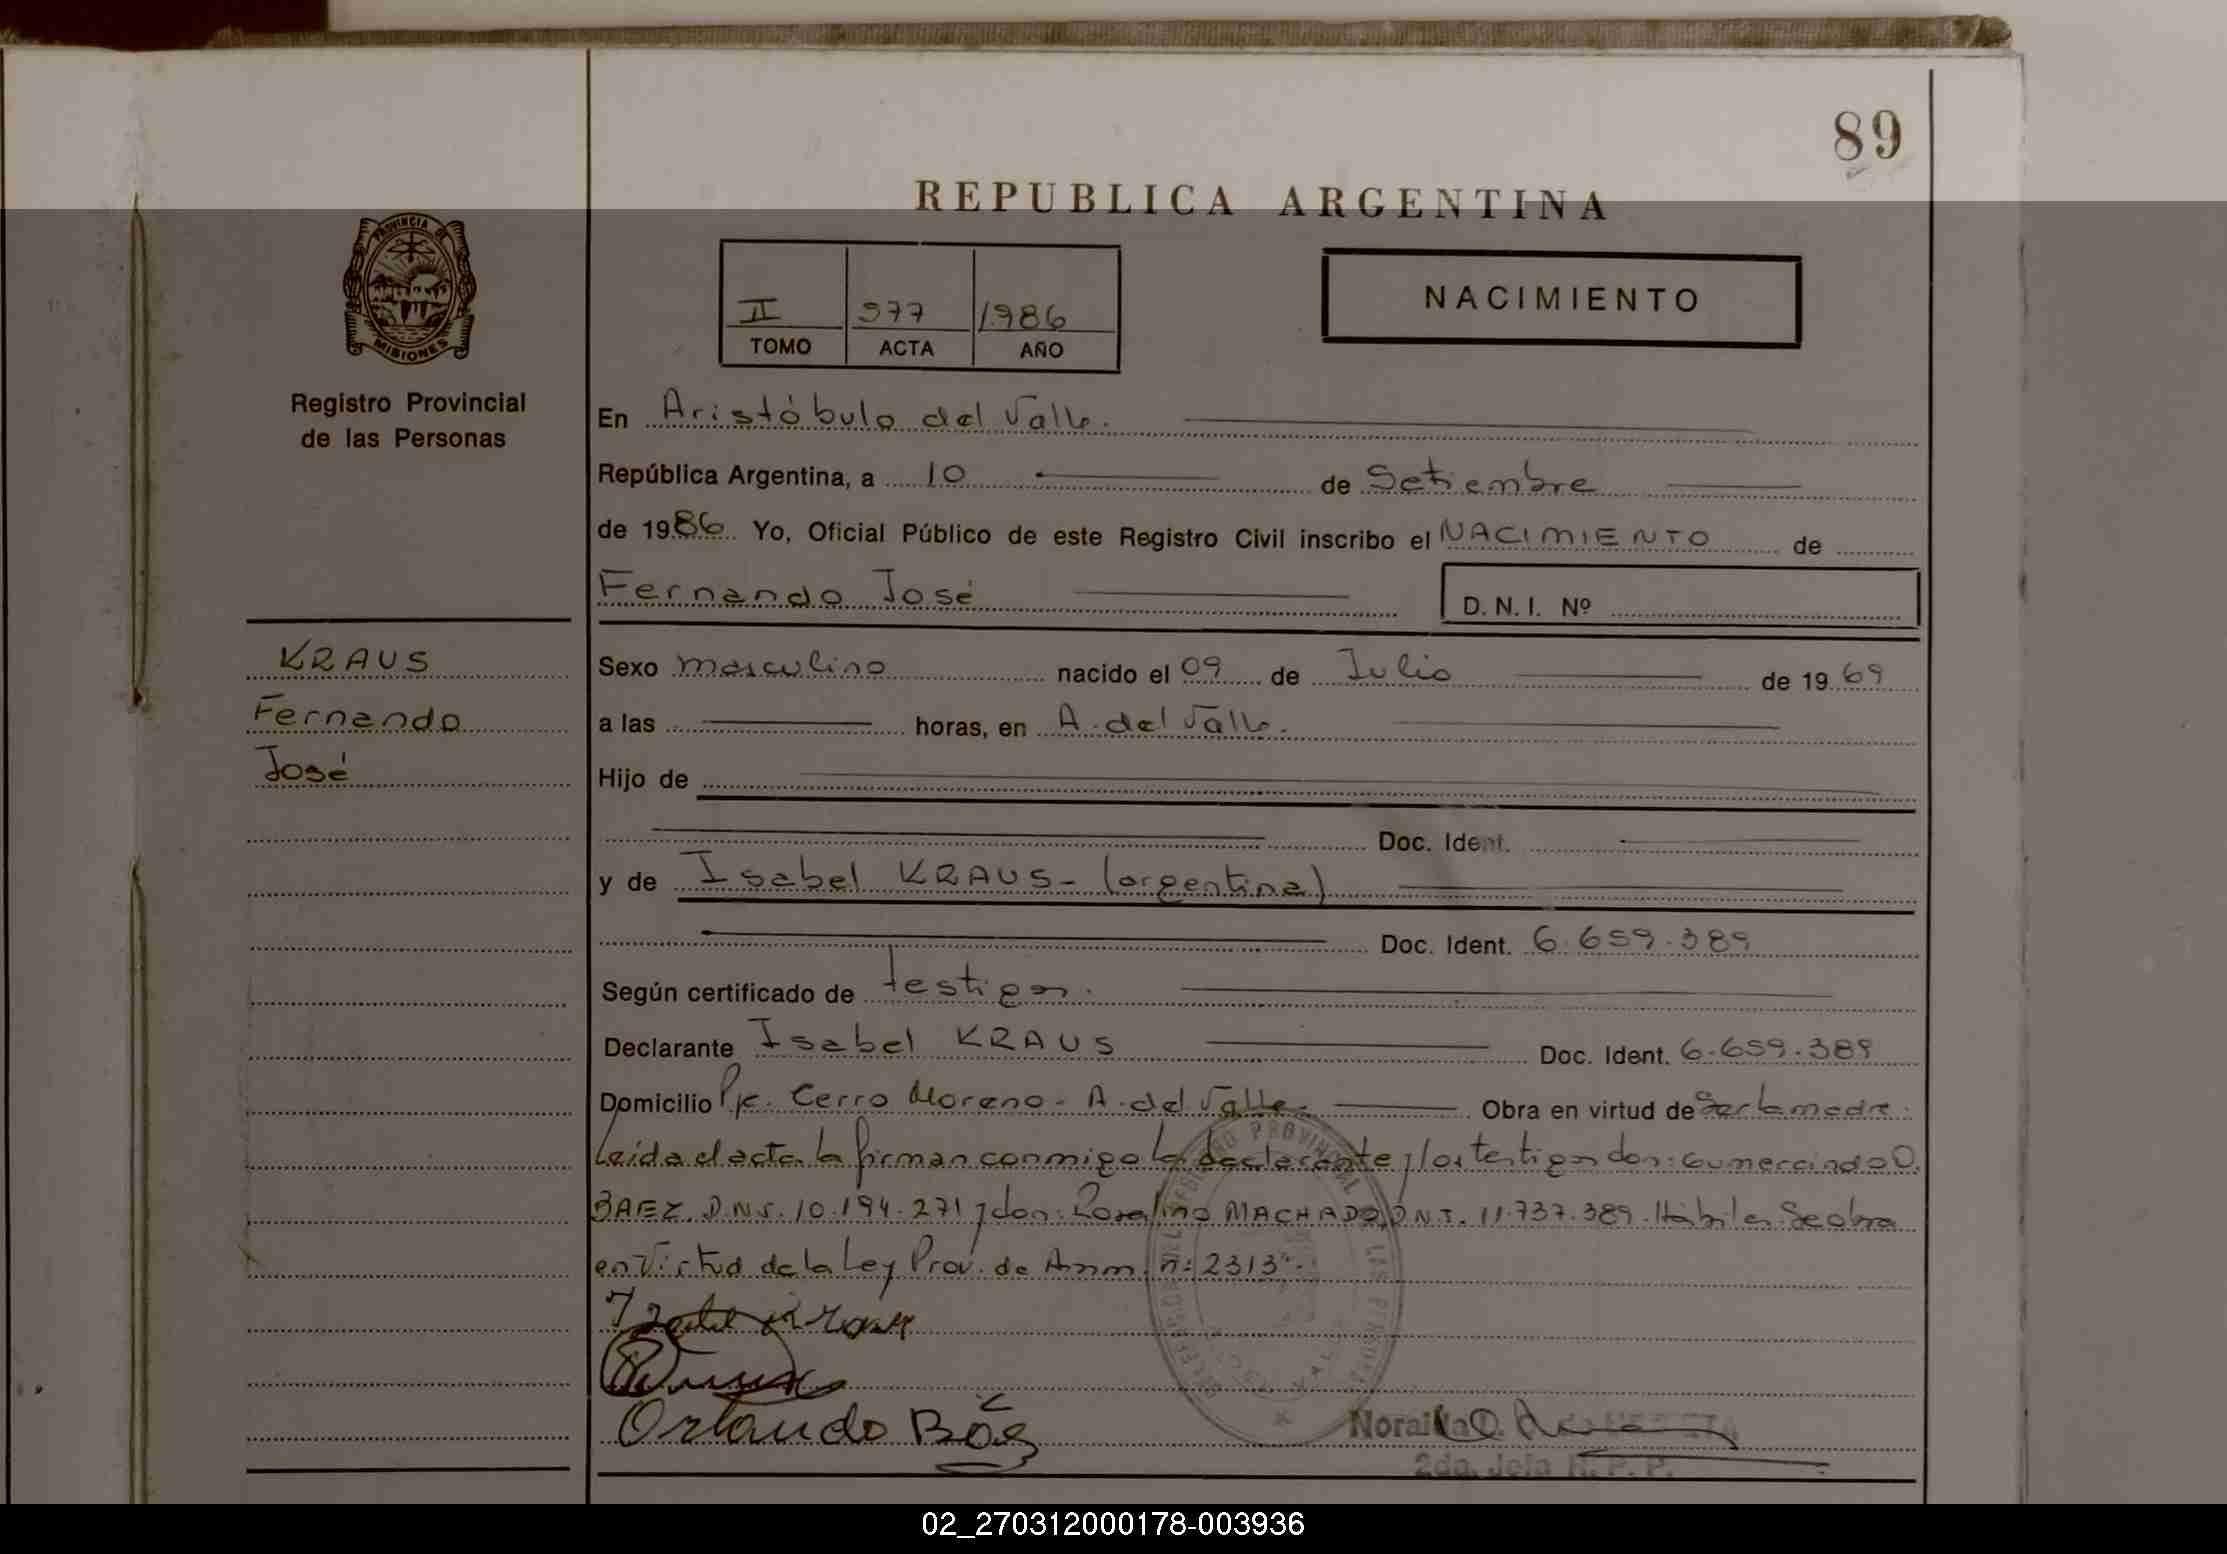 89
REPUBLICA ARGENTINA
PROVINCIA DE
MISIONES
Registro Provincial
de las Personas
II 977 1986
TOMO ACTA AÑO
NACIMIENTO
En Aristóbulo del Valle.
República Argentina, a 10 de Setiembre
de 1986 Yo, Oficial Público de este Registro Civil inscribo el NACIMIENTO de
Fernando José D.N.I. Nº
KRAUS
Fernando
José
Sexo masculino nacido el 09 de Julio de 1969
a las horas, en A. del Valle.
Hijo de
Doc. Ident.
y de Isabel KRAUS- (argentina)
Doc. Ident. 6.659.389
Según certificado de testigos.
Declarante Isabel KRAUS Doc. Ident. 6.659.389
Domicilio Pje. Cerro Moreno - A. del Valle. Obra en virtud de Ser la madre.
Leída el acta la firman conmigo la declarante y los testigos don: Gumercindo O.
BAEZ. D.N.I. 10.194.271 y don: Rosalino MACHADO, D.N.I. 11.737.389. Hábiles Se obra
en Virtud de la Ley Prov. de Amn. n: 2313".
Orlando Báez
2da. Jefa R. P. P.
02_270312000178-003936